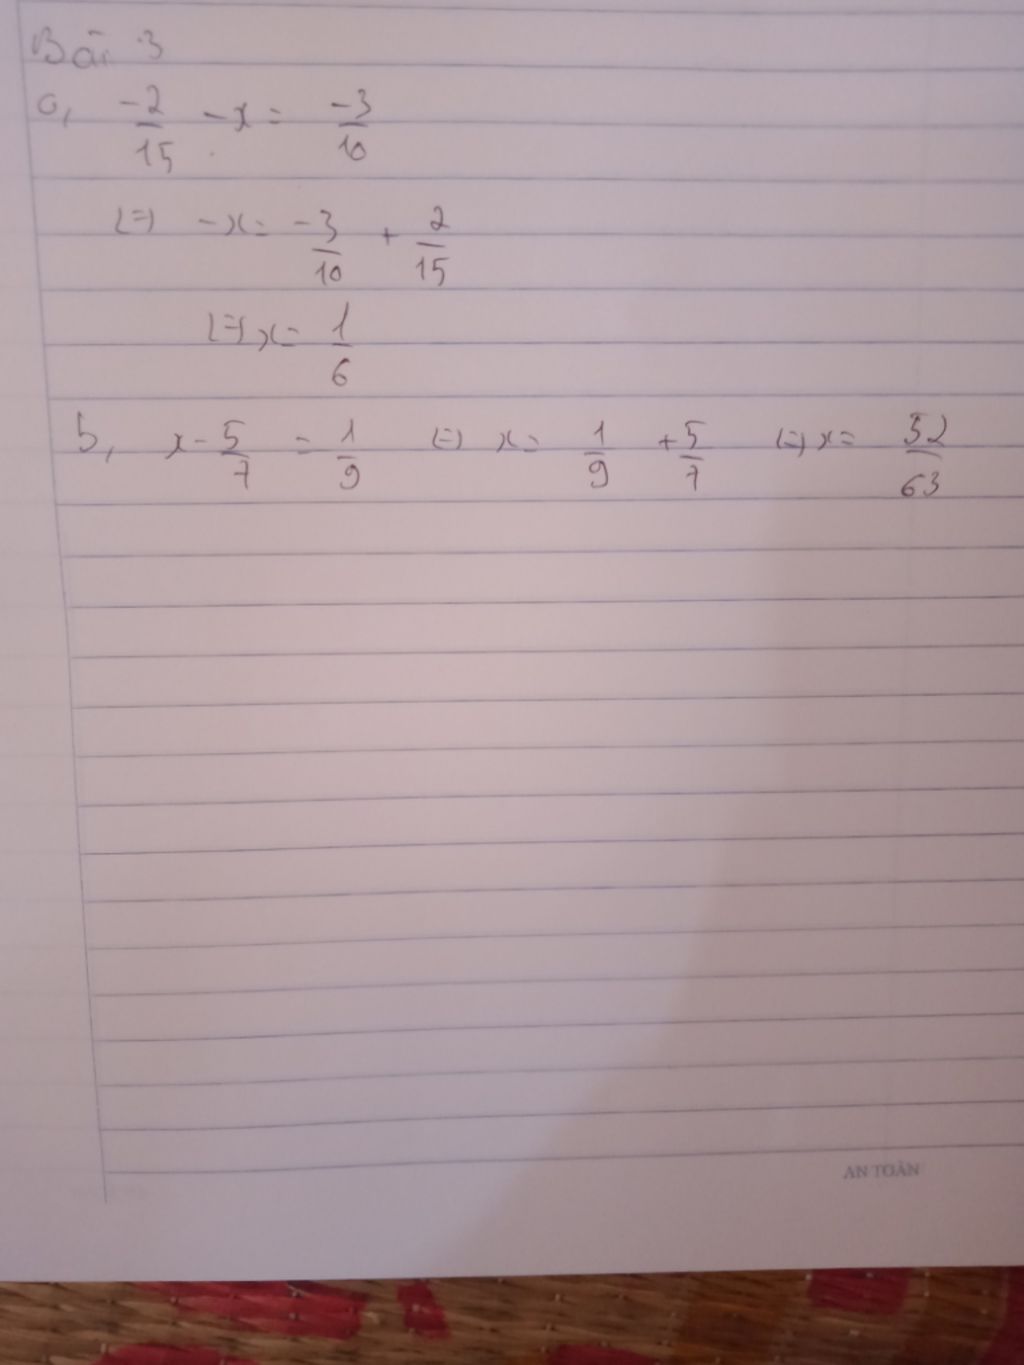 Bài 3
a, -2/15 - x = -3/10
<=> -x = -3/10 + 2/15
<=> x = 1/6
b, x - 5/7 = 1/9 <=> x = 1/9 + 5/7 <=> x = 52/63
AN TOÀN